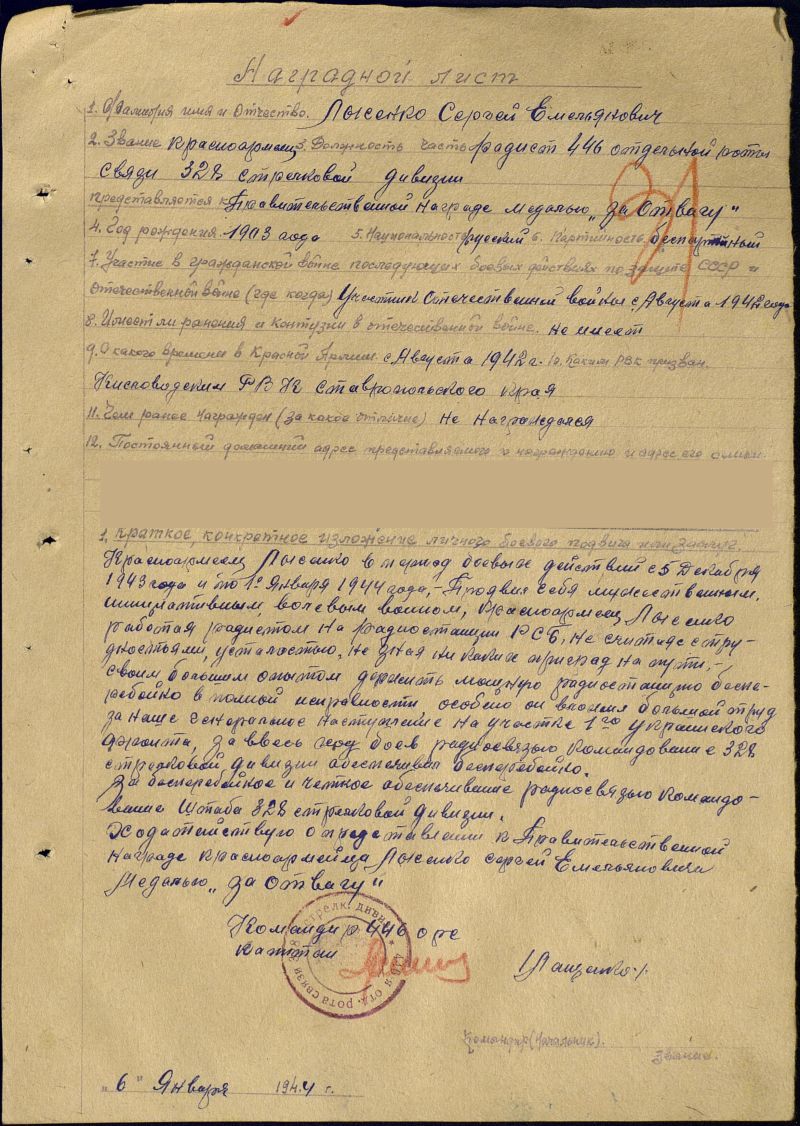 Наградной лист
1. Фамилия имя и Отчество. Лысенко Сергей Емельянович
2. Звание Красноармеец 3. Должность часть радист 446 отдельной роты
связи 328 стрелковой дивизии
представляется к Правительственной Награде медалью „за Отвагу"
4. Год рождения 1903 года 5. Национальность русский 6. Партийность беспартийный
7. Участие в гражданской войне последующих боевых действиях по защите СССР и
Отечественной войне (где когда) Участник Отечественной войны с Августа 1942 года
8. Имеет ли ранения и контузии в отечественной войне. не имеет
9. С какого времени в Красной Армии с Августа 1942 г. 10. Каким РВК призван.
Кисловодским РВК Ставропольского края
11. Чем ранее награжден (за какое отличие) не Награждался
12. Постоянный домашний адрес представляемого к награждению и адрес его семьи.
1. Краткое, конкретное изложение личного боевого подвига или заслуг.
Красноармеец Лысенко в период боевых действий с 5 Декабря
1943 года и по 1е Января 1944 года,- Проявил себя мужественным,
инициативным волевым воином, Красноармеец Лысенко
работая радистом на радиостанции РСБ, не считаясь с тру-
дностями, усталостью, не зная ни каких преград на пути,-
своим большим опытом держить мощную радиостанцию беспе-
ребойко в полной исправности особено он вложил большой труд
за наше Генеральное наступление на участке 1го Украинского
фронта, за ввесь ход боев радиосвязью командование 328
стрелковой дивизии обеспечивал бесперебойко.
За бесперебойкое и четкое обеспечивание радиосвязью командо-
вание Штаба 328 стрелковой дивизии.
Ходатайствую о представлении к Правительственной
награде красноармейца Лысенко Сергей Емельяновича
Медалью „за Отвагу"
Командир 446 орс
капитан Лященко
446 отд. рота связи 328 стрелк. дивиз
Командир (Начальник).
Звание.
„6" Января 1944 г.